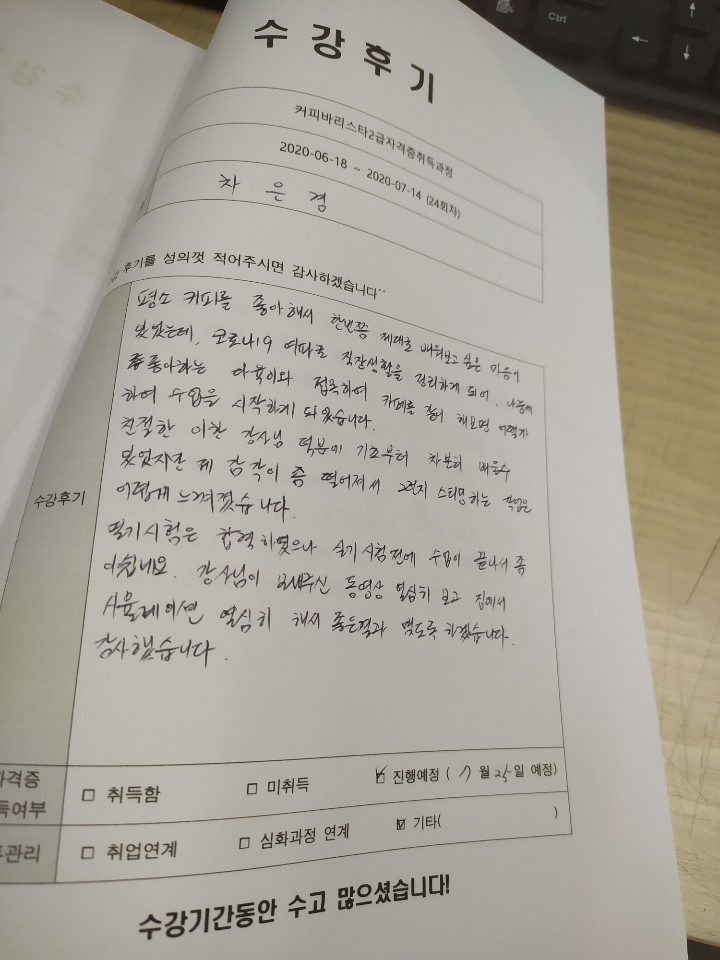 수강후기
커피바리스타2급자격증취득과정
2020-06-18 ~ 2020-07-14 (24회차)
차은경
후기를 성의껏 적어주시면 감사하겠습니다^^
수강후기
평소 커피를 좋아해서 한번쯤 제대로 배워보고 싶은 마음이
있었는데, 코로나19 여파로 직장생활을 정리하게 되어, 나중에
좋아하는 다육이와 접목하여 카페를 해보면 어떨까
하여 수업을 시작하게 되었습니다.
친절한 이한 강사님 덕분에 기초부터 차분히 배울수
있었지만 제 감각이 좀 떨어져서 스티밍하는 작업은
어렵게 느껴졌습니다.
필기시험은 합격하였으나 실기시험전에 수업이 끝나서 좀
아쉽네요. 강사님이 보내주신 동영상 열심히 보고 집에서
시뮬레이션 열심히 해서 좋은결과 맺도록 하겠습니다.
감사했습니다.
격증
득여부
□ 취득함 □ 미취득 ☑ 진행예정 ( 7 월 25 일 예정)
관리
□ 취업연계 □ 심화과정 연계 ☑ 기타( )
수강기간동안 수고 많으셨습니다!
Ctrl